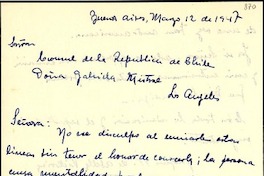 370
Buenos aires, Marzo 12 de 1947
Señora
Consul de la Republica de Chile
Doña Gabriela Mistral
Los Angeles
Señora:
No me disculpo al enviarle estas
lineas sin tener el honor de conocerla; la persona
cuya mentalidad